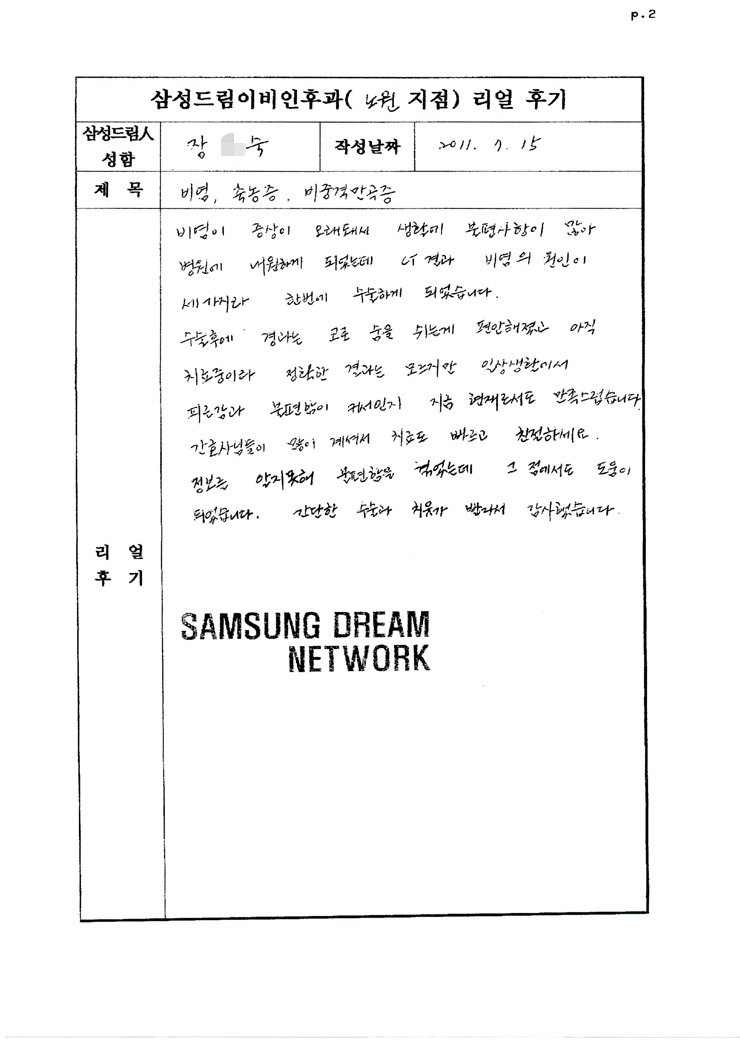 p.2
삼성드림이비인후과( 노원 지점) 리얼 후기
삼성드림人 성함
장 숙
작성날짜
2011. 7. 15
제 목
비염, 축농증, 비중격만곡증
비염이 증상이 오래돼서 생활에 불편사항이 많아
병원에 내원하게 되었는데 CT 결과 비염의 원인이
세가지라 한번에 수술하게 되었습니다.
수술후에 경과는 코로 숨을 쉬는게 편안해졌고 아직
치료중이라 정확한 결과는 모르지만 일상생활에서
피곤감과 불편함이 커서인지 지금 현재로서도 만족스럽습니다
간호사님들이 많이 계셔서 치료도 빠르고 친절하세요.
정보를 알지못해 불편함을 겪었는데 그 점에서도 도움이
되었습니다. 간단한 수술과 치유가 빨라서 감사했습니다.
리 얼
후 기
SAMSUNG DREAM
NETWORK